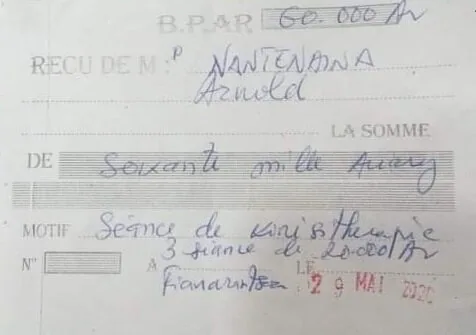 B.P.AR 60.000 Ar
RECU DE M : P NANTENAINA
Arnold
LA SOMME
DE Soixante mille Ariary
MOTIF Séance de kinésithérapie
3 séance de 20.000 Ar
N° A Fianarantsoa LE 29 MAI 2020